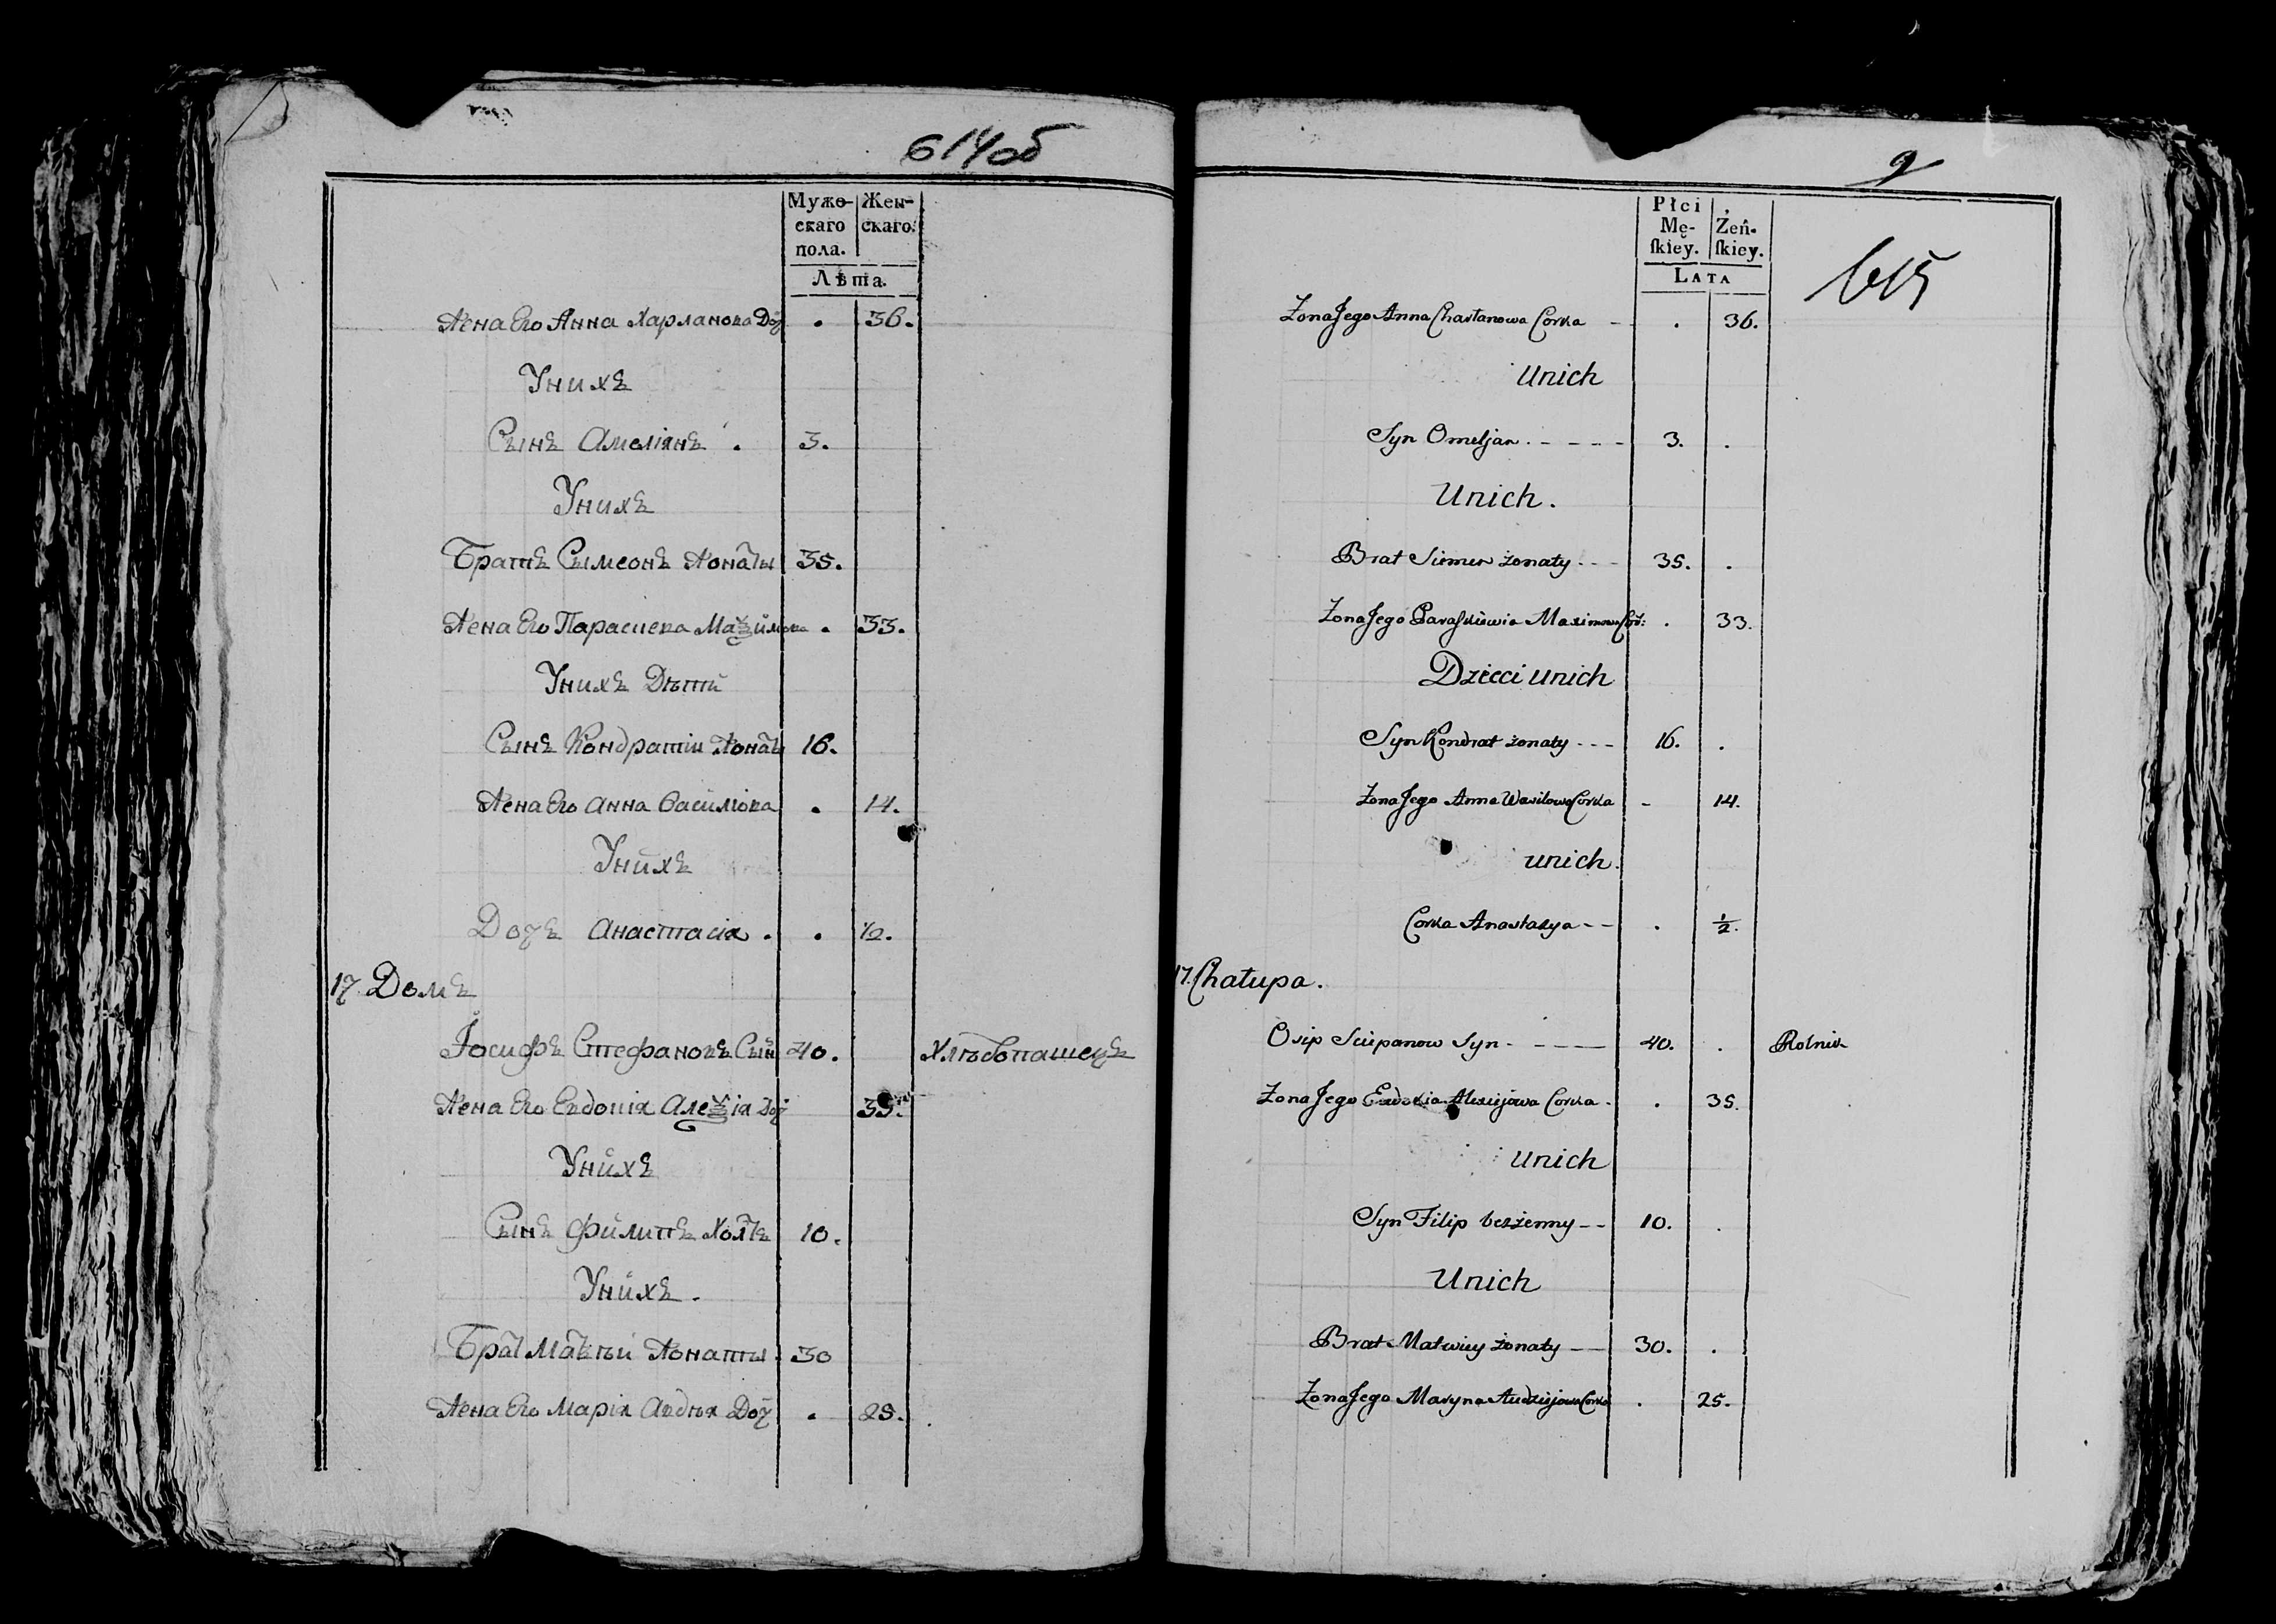 614об
Мужескаго пола. Женскаго.
Лѣта.
Жена Его Анна Харланова Доч . 36.
У нихъ
Сынъ Амеліянъ . 3.
У нихъ
Братъ Сымеонъ Жонаты 35.
Жена Его Параскева Маѯимова . 33.
У нихъ Дѣти
Сынъ Кондратій Жонаты 16.
Жена Его Анна Василіова . 14.
У нихъ
Дочъ Анастасія . . ½.
17 Домъ
Іосифъ Стефановъ Сын 40. Хлѣбопашецъ
Жена Его Евдокія Алеѯія Доч 35.
У нихъ
Сынъ Филипъ Холъ 10.
У нихъ.
Брат Матвѣй Жонаты 30
Жена Его Марія Авдѣя Доч . 25.
9
615
Płci Męskiey. Żeńskiey.
LATA
Żona Jego Anna Charłanowa Corka . 36.
U nich
Syn Omeljan 3. .
U nich.
Brat Siemen żonaty 35. .
Żona Jego Paraskiewia Maximowa Cor: . 33.
Dzieci u nich
Syn Kondrat żonaty 16. .
Żona Jego Anna Wasilowa Corka - 14.
u nich.
Corka Anastazya . ½.
17. Chałupa.
Osip Sciepanow Syn 40. . Rolnik
Żona Jego Ewdokia Alexiejowa Corka . 35.
U nich
Syn Filip bezżenny 10. .
U nich
Brat Matwiey żonaty 30. .
Żona Jego Maryna Audziejowa Corka . 25.